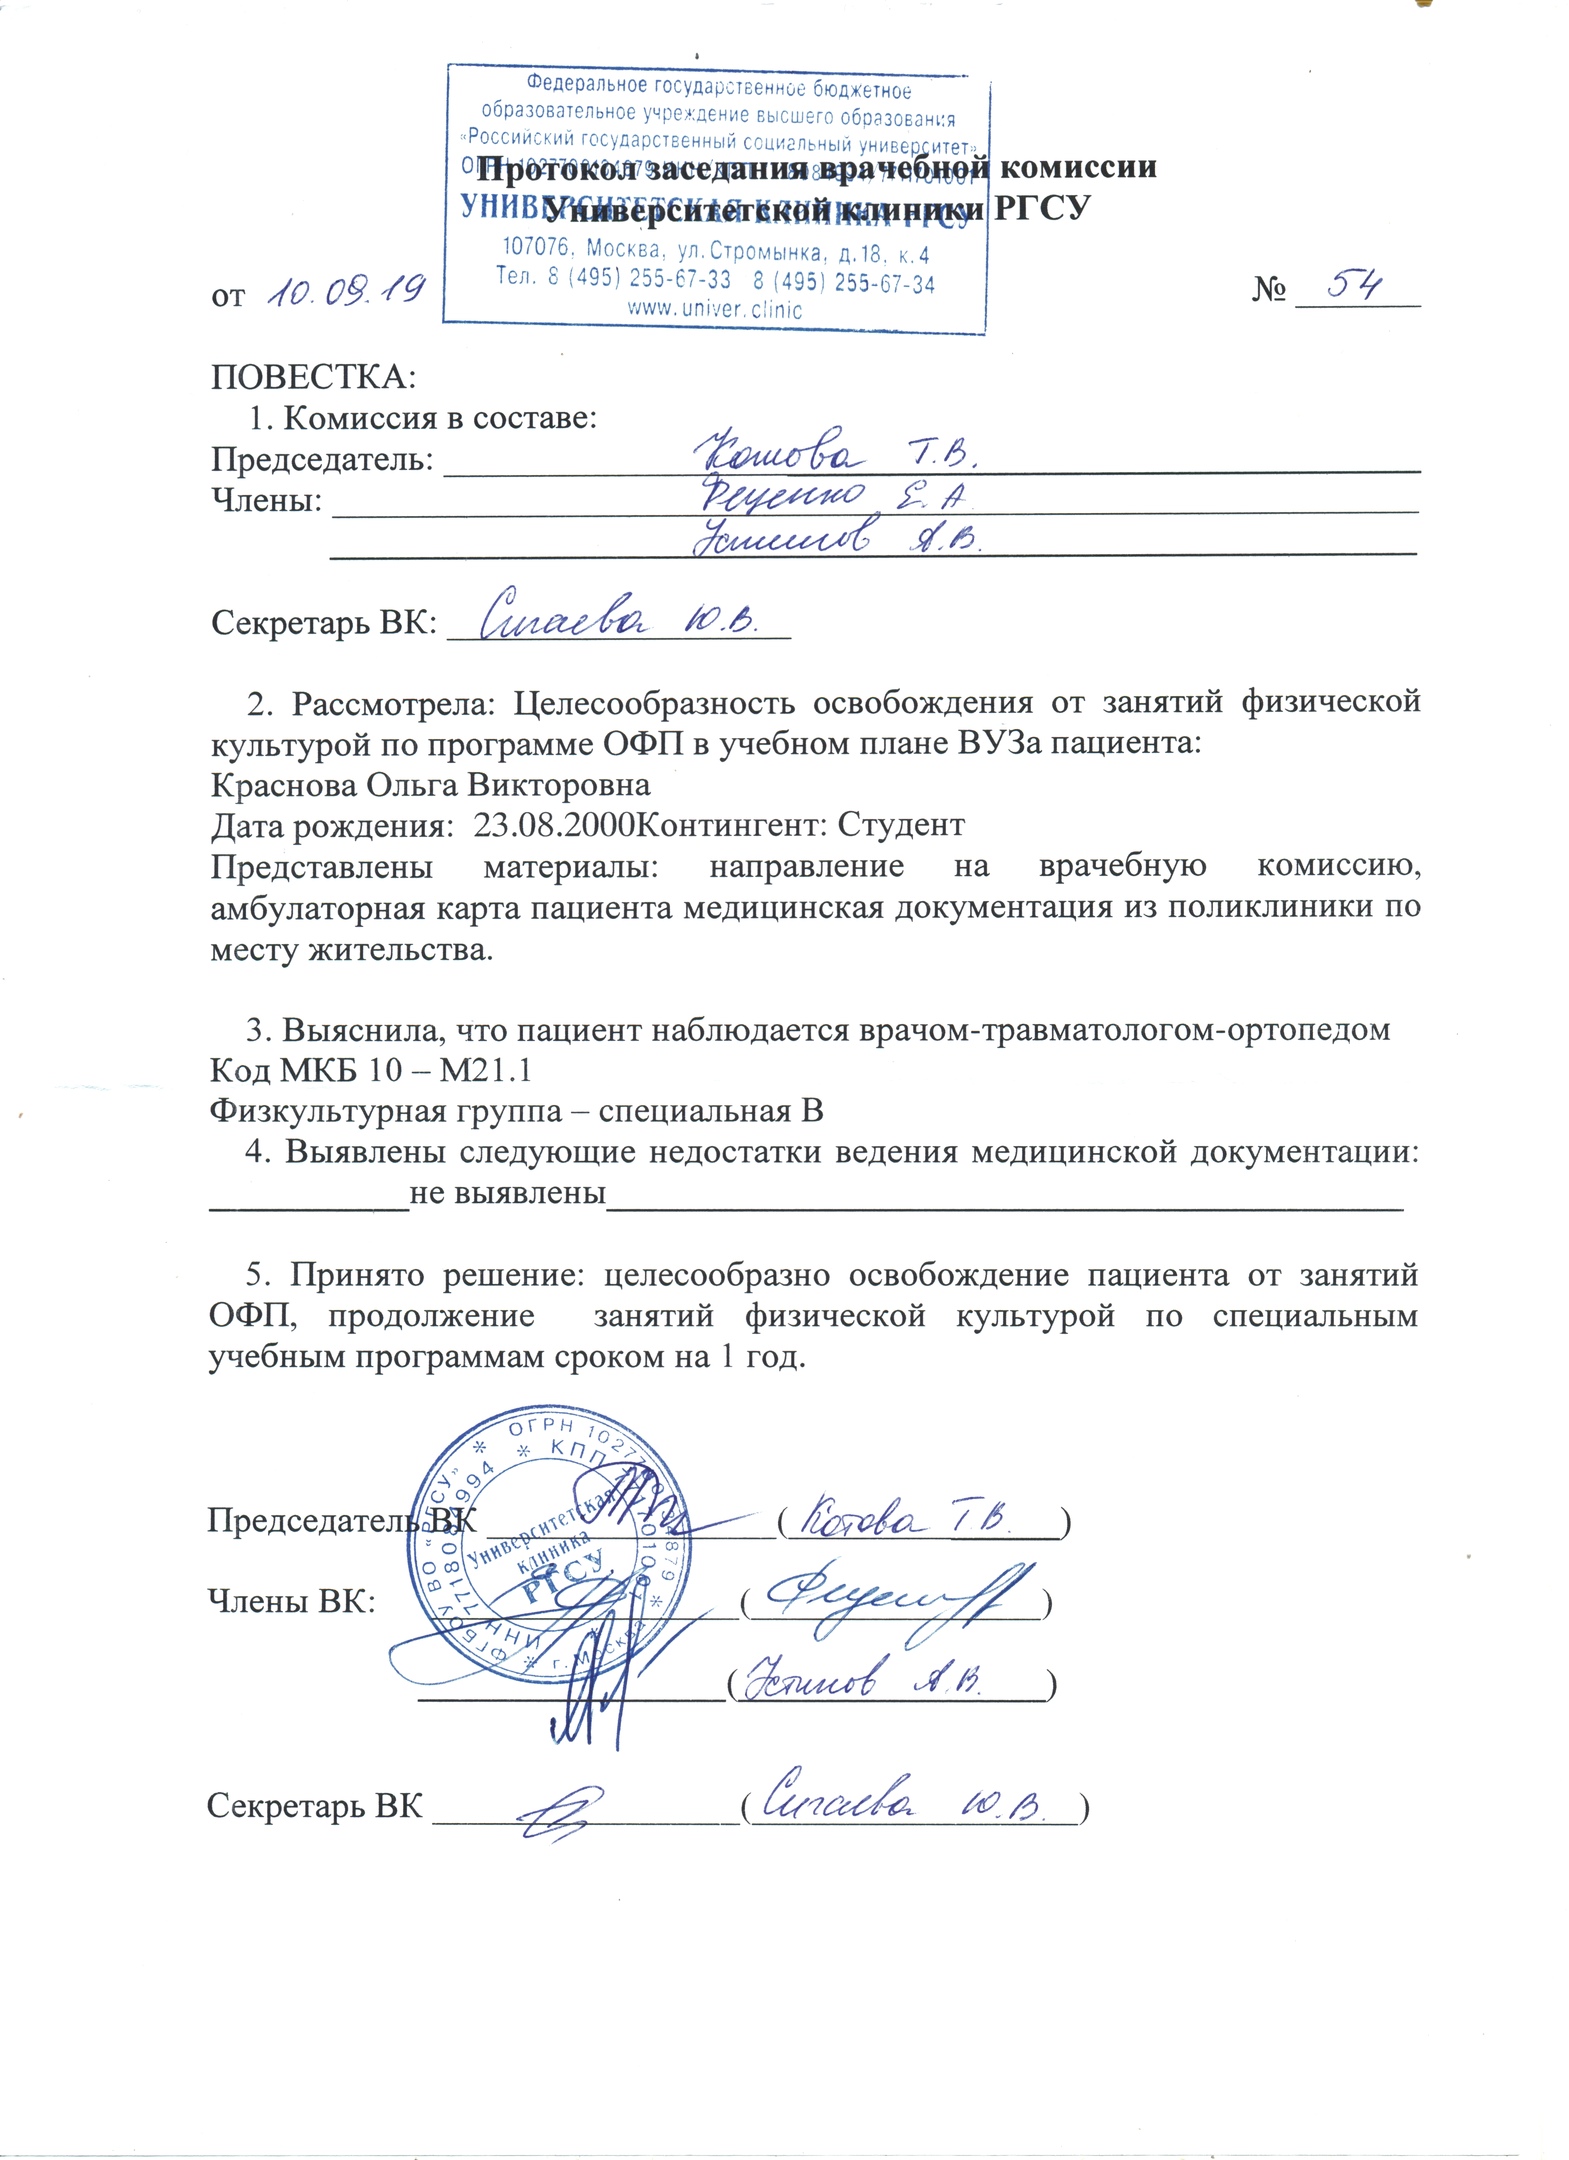 Федеральное государственное бюджетное
образовательное учреждение высшего образования
«Российский государственный социальный университет»
Протокол заседания врачебной комиссии
УНИВЕРСИТЕТСКАЯ КЛИНИКА РГСУ
Университетской клиники РГСУ
107076, Москва, ул. Стромынка, д.18, к.4
Тел. 8 (495) 255-67-33 8 (495) 255-67-34
www.univer.clinic
от 10.09.19 № 54
ПОВЕСТКА:
1. Комиссия в составе:
Председатель: Котова Т.В.
Члены: Фещенко Е.А
Устинов А.В.
Секретарь ВК: Сигаева Ю.В.
2. Рассмотрела: Целесообразность освобождения от занятий физической
культурой по программе ОФП в учебном плане ВУЗа пациента:
Краснова Ольга Викторовна
Дата рождения: 23.08.2000Контингент: Студент
Представлены материалы: направление на врачебную комиссию,
амбулаторная карта пациента медицинская документация из поликлиники по
месту жительства.
3. Выяснила, что пациент наблюдается врачом-травматологом-ортопедом
Код МКБ 10 – М21.1
Физкультурная группа – специальная В
4. Выявлены следующие недостатки ведения медицинской документации:
не выявлены
5. Принято решение: целесообразно освобождение пациента от занятий
ОФП, продолжение занятий физической культурой по специальным
учебным программам сроком на 1 год.
ФГБОУ ВО "РГСУ" * ОГРН * г. Москва *
ИНН 7718084994 * КПП
Университетская
клиника
РГСУ
Председатель ВК (Котова Т.В.)
Члены ВК: ( )
(Устинов А.В.)
Секретарь ВК (Сигаева Ю.В.)